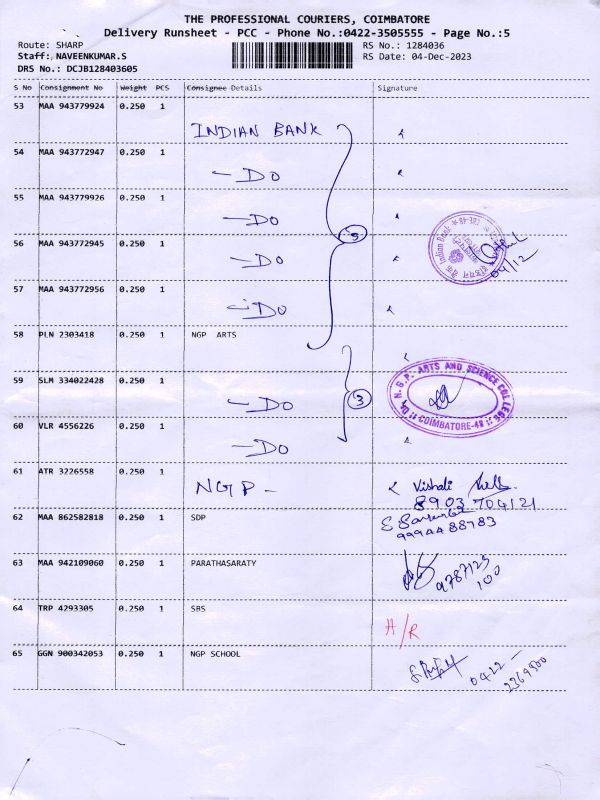 THE PROFESSIONAL COURIERS, COIMBATORE
Delivery Runsheet - PCC - Phone No.:0422-3505555 - Page No.:5
Route: SHARP RS No.: 1284036
Staff: NAVEENKUMAR.S RS Date: 04-Dec-2023
DRS No.: DCJB128403605
S No Consignment No Weight PCS Consignee Details Signature
53 MAA 943779924 0.250 1
INDIAN BANK
54 MAA 943772947 0.250 1
- DO
55 MAA 943779926 0.250 1
- DO
5
56 MAA 943772945 0.250 1
- DO
Indian Bank
04/12
57 MAA 943772956 0.250 1
- DO
58 PLN 2303418 0.250 1 NGP ARTS
Dr. N.G.P. ARTS AND SCIENCE COLLEGE
COIMBATORE-48
59 SLM 334022428 0.250 1
- DO
3
60 VLR 4556226 0.250 1
- DO
61 ATR 3226558 0.250 1
NGP -
Vishali
8903 704121
62 MAA 862582818 0.250 1 SDP
9994488783
63 MAA 942109060 0.250 1 PARATHASARATY
9787123
100
64 TRP 4293305 0.250 1 SBS
H/R
65 GGN 900342053 0.250 1 NGP SCHOOL
0422 -
2369500